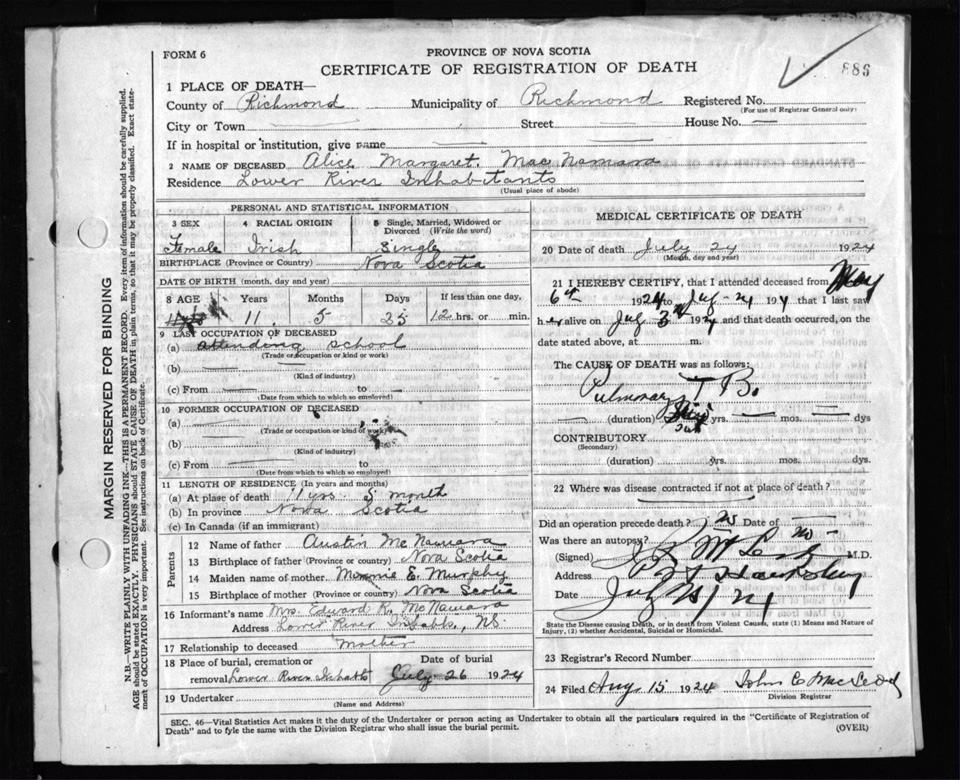 FORM 6
PROVINCE OF NOVA SCOTIA
CERTIFICATE OF REGISTRATION OF DEATH
886
1 PLACE OF DEATH—
County of Richmond Municipality of Richmond Registered No.
(For use of Registrar General only)
City or Town Street House No. —
If in hospital or institution, give name
2 NAME OF DECEASED Alice Margaret Mac Namara
Residence Lower River Inhabitants
(Usual place of abode)
PERSONAL AND STATISTICAL INFORMATION
3 SEX 4 RACIAL ORIGIN 5 Single, Married, Widowed or Divorced (Write the word)
Female Irish Single
BIRTHPLACE (Province or Country) Nova Scotia
DATE OF BIRTH (month, day and year)
8 AGE Years Months Days If less than one day,
11 5 25 12 hrs. or min.
9 LAST OCCUPATION OF DECEASED
(a) attending school
(Trade or occupation or kind or work)
(b)
(Kind of industry)
(c) From to
(Date from which to which so employed)
10 FORMER OCCUPATION OF DECEASED
(a)
(Trade or occupation or kind of work)
(b)
(Kind of industry)
(c) From to
(Date from which to which so employed)
11 LENGTH OF RESIDENCE (In years and months)
(a) At place of death 11 yrs. 5 month
(b) In province Nova Scotia
(c) In Canada (if an immigrant)
Parents
12 Name of father Austin McNamara
13 Birthplace of father (Province or country) Nova Scotia
14 Maiden name of mother E. Murphy
15 Birthplace of mother (Province or country) Nova Scotia
16 Informant's name Mrs. Edward McNamara
Address Lower River Inhabts, NS.
17 Relationship to deceased Mother
18 Place of burial, cremation or Date of burial
removal Lower River Inhabts July 26 1924
19 Undertaker
(Name and Address)
MEDICAL CERTIFICATE OF DEATH
20 Date of death July 24 1924
(Month, day and year)
21 I HEREBY CERTIFY, that I attended deceased from May
6th 1924 to July 24 192 that I last saw
her alive on July 3rd 1924 and that death occurred, on the
date stated above, at m.
The CAUSE OF DEATH was as follows:
Pulmonary T B.
(duration) yrs. — mos. — dys
CONTRIBUTORY
(Secondary)
(duration) yrs. mos. dys.
22 Where was disease contracted if not at place of death?
Did an operation precede death? no Date of —
Was there an autopsy? no
(Signed) M.D.
Address Pt Hawkesbury
Date July 24
State the Disease causing Death, or in death from Violent Causes, state (1) Means and Nature of
Injury, (2) whether Accidental, Suicidal or Homicidal.
23 Registrar's Record Number
24 Filed Aug 15 1924 John C MacLeod
Division Registrar
SEC. 46—Vital Statistics Act makes it the duty of the Undertaker or person acting as Undertaker to obtain all the particulars required in the "Certificate of Registration of
Death" and to fyle the same with the Division Registrar who shall issue the burial permit.
(OVER)
MARGIN RESERVED FOR BINDING
N.B.—WRITE PLAINLY WITH UNFADING INK—THIS IS A PERMANENT RECORD. Every item of information should be carefully supplied.
AGE should be stated EXACTLY. PHYSICIANS should STATE CAUSE OF DEATH in plain terms, so that it may be properly classified. Exact state-
ment of OCCUPATION is very important. See instructions on back of Certificate.